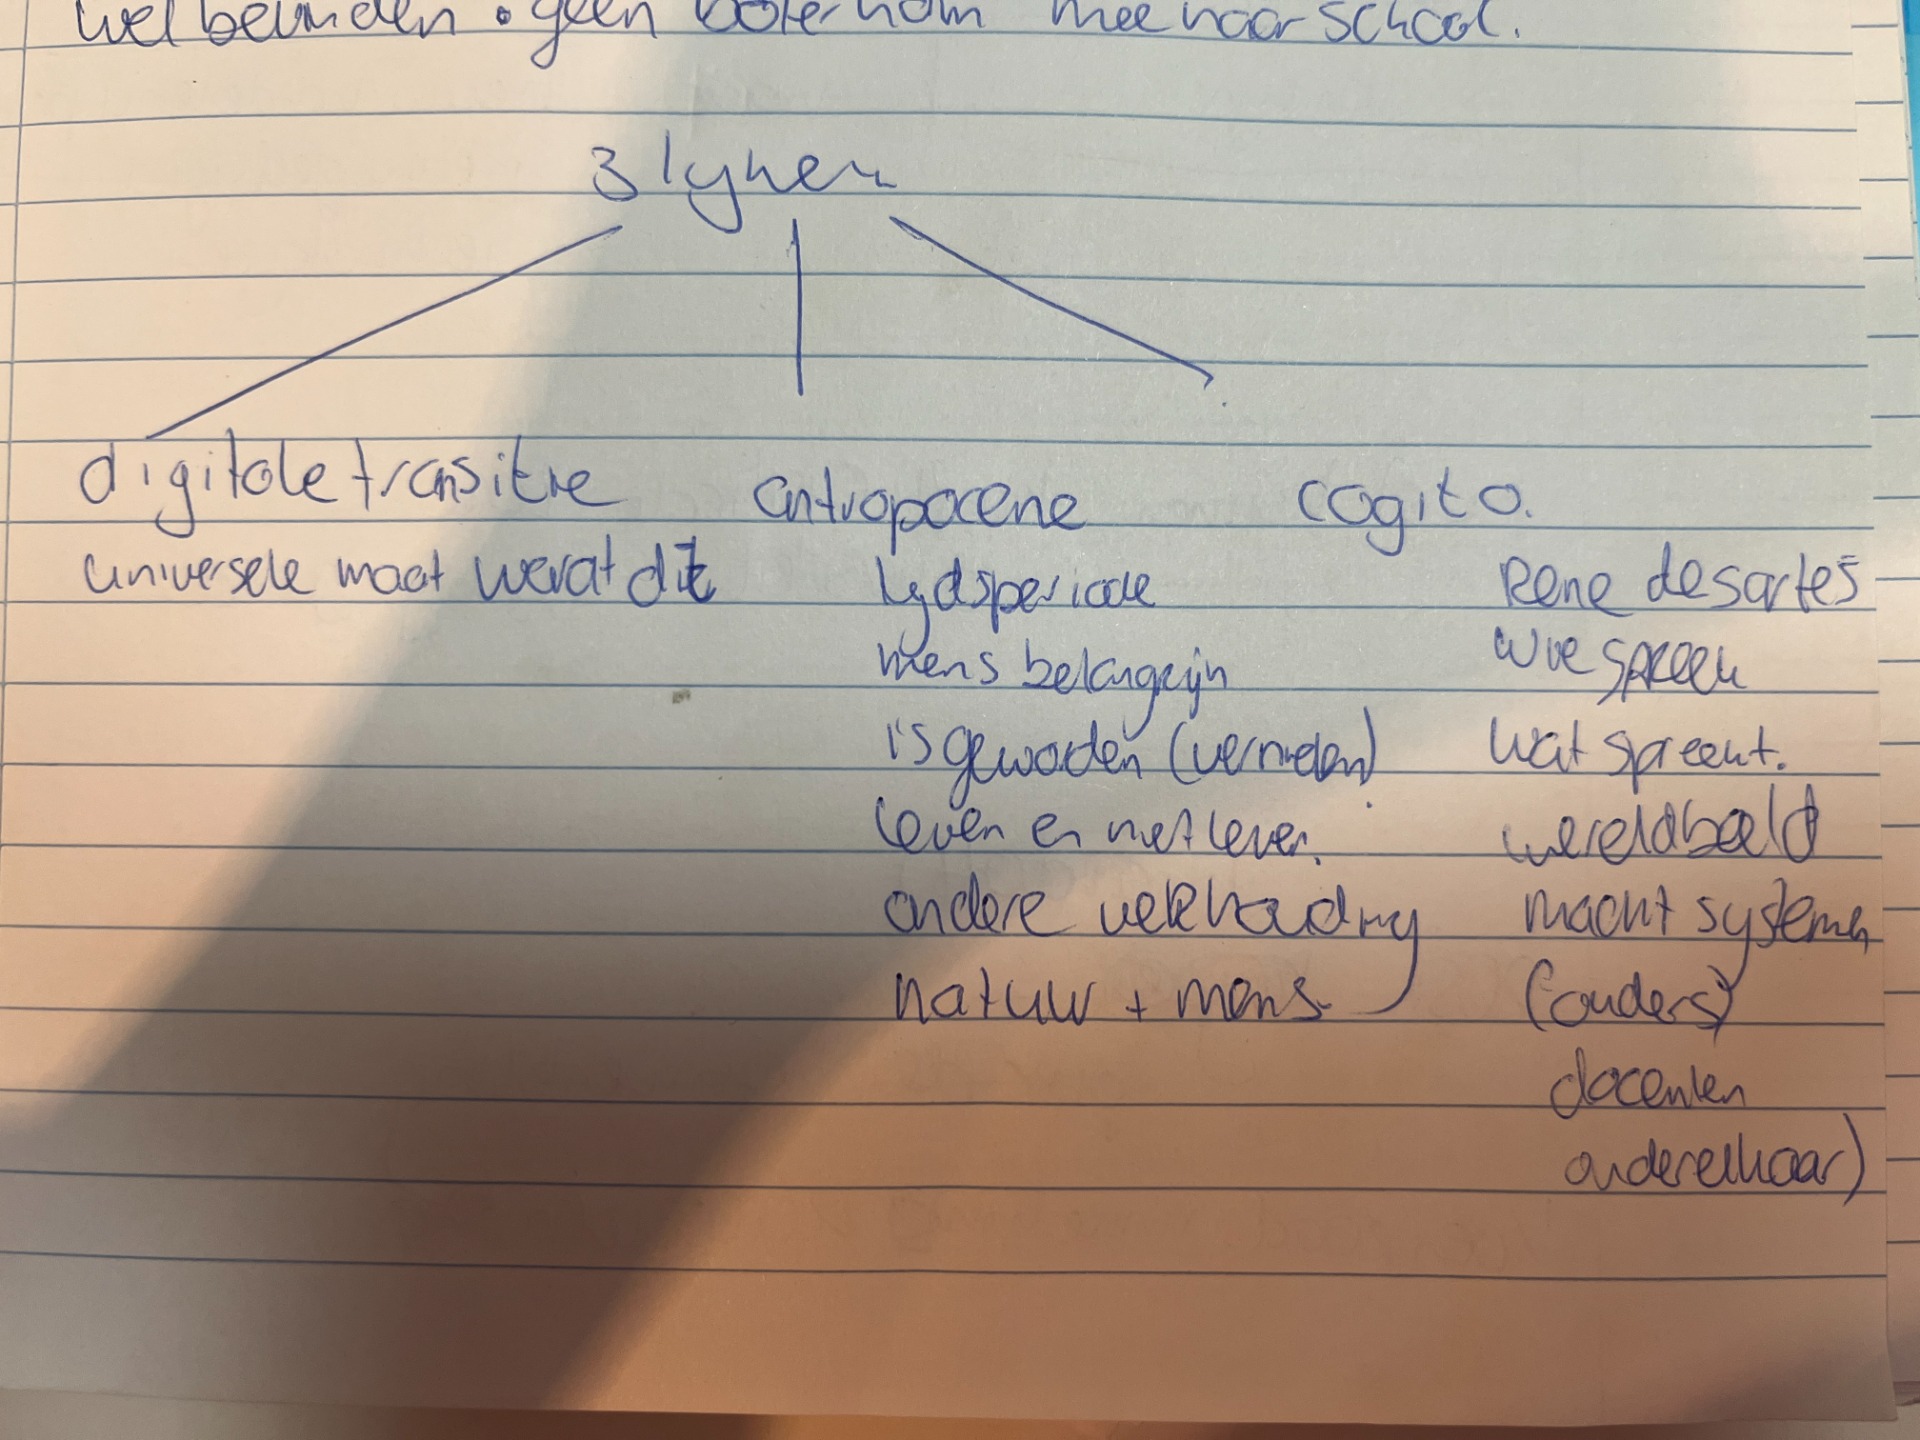 welbevinden • geen boterham mee naar school.
3 lijnen
digitale transitie
universele maat wordt dit
antropocene
tijdsperiode
mens belangrijk
is geworden (vernielen)
leven en niet leven.
andere verhouding
natuur + mens
cogito.
Rene desartes
wie spreek
wat spreekt.
wereldbeeld
macht systemen
(ouders)
docenten
onderelkaar)